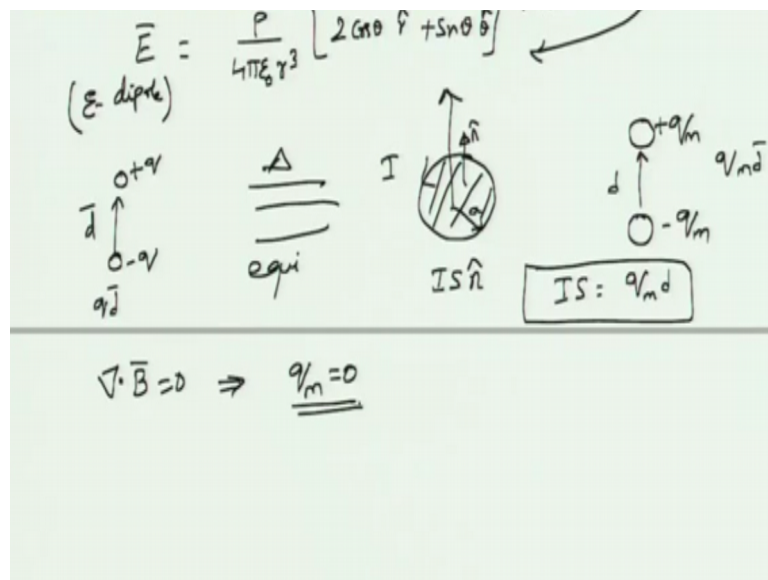 Ē = P / 4πε₀r³ [2 cosθ r̂ + sinθ θ̂]
(E- dipole)
+q
d̄
-q
qd̄
Δ
equi
I
n̂
a
IS n̂
+qm
d
-qm
qm d̄
IS = qm d
∇·B̄ = 0 ⇒ qm = 0